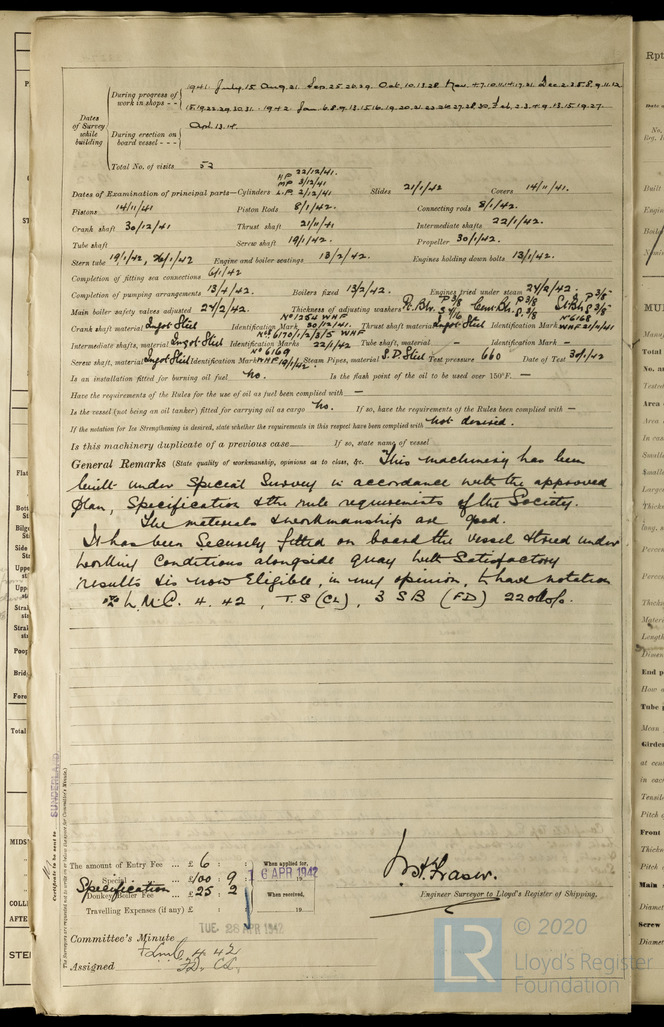 Rpt
Dates of Survey while building
During progress of work in shops - - 1941. July 15 Aug. 21. Sep. 25. 26. 29. Oct. 10. 13. 28 Nov. 4. 7. 10. 11. 14. 17. 21. Dec. 2. 3. 5. 8. 9. 11. 12
15. 19. 22. 29. 30. 31. - 1942 Jan. 6. 8. 9. 13. 15. 16. 19. 20. 21. 22. 26. 27. 28. 30. Feb. 2. 3. 4. 9. 13. 15. 19. 27.
During erection on board vessel - - - April 13. 14.
Total No. of visits 52
Dates of Examination of principal parts—Cylinders HP 22/12/41. MP 3/12/41 L.P. 2/12/41 Slides 21/1/42 Covers 14/11/41.
Pistons 14/11/41 Piston Rods 8/1/42. Connecting rods 8/1/42.
Crank shaft 30/12/41 Thrust shaft 21/11/41 Intermediate shafts 22/1/42.
Tube shaft Screw shaft 19/1/42. Propeller 30/1/42.
Stern tube 19/1/42, 26/1/42 Engine and boiler seatings 13/2/42. Engines holding down bolts 13/2/42.
Completion of fitting sea connections 6/1/42
Completion of pumping arrangements 13/4/42. Boilers fixed 13/2/42. Engines tried under steam 24/2/42.
Main boiler safety valves adjusted 24/2/42. Thickness of adjusting washers P. Blr. P 3/8 S 7/16 Cent. Blr. P 3/8 S 3/8 St. Blr. P 3/8 S 3/8
Crank shaft material Ingot Steel Identification Mark No 1254 WHF 30/12/41. Thrust shaft material Ingot Steel Identification Mark No 6168 WHF 21/11/41
Intermediate shafts, material Ingot Steel Identification Marks Nos 6170/1/2/3/5 WHF 22/1/42 Tube shaft, material — Identification Mark —
Screw shaft, material Ingot Steel Identification Mark No 6169 WHF 19/1/42. Steam Pipes, material S.D. Steel Test pressure 660 Date of Test 30/1/42
Is an installation fitted for burning oil fuel No. Is the flash point of the oil to be used over 150°F. —
Have the requirements of the Rules for the use of oil as fuel been complied with —
Is the vessel (not being an oil tanker) fitted for carrying oil as cargo No. If so, have the requirements of the Rules been complied with —
If the notation for Ice Strengthening is desired, state whether the requirements in this respect have been complied with Not desired.
Is this machinery duplicate of a previous case If so, state name of vessel
General Remarks (State quality of workmanship, opinions as to class, &c. This machinery has been
built under Special Survey in accordance with the approved
plan, Specification & the rule requirements of the Society.
The materials & workmanship are good.
It has been Securely fitted on board the vessel & tried under
working conditions alongside quay with Satisfactory
results & is now Eligible, in my opinion, to have notation
L.M.C. 4. 42, T.S (CL), 3 SB (FD) 220 lb.
Certificate to be sent to SUNDERLAND
The amount of Entry Fee ... £ 6 : : When applied for,
Special ... £ 100 : 9 : 16 APR 1942
Specification Donkey Boiler Fee ... £ 25 : 2 When received,
Travelling Expenses (if any) £ : : 19
W.H. Fraser.
Engineer Surveyor to Lloyd's Register of Shipping.
TUE. 28 APR 1942
Committee's Minute
Assigned + L.M.C. 4. 42
F.D. C.L.
© 2020
LR Lloyd's Register
Foundation